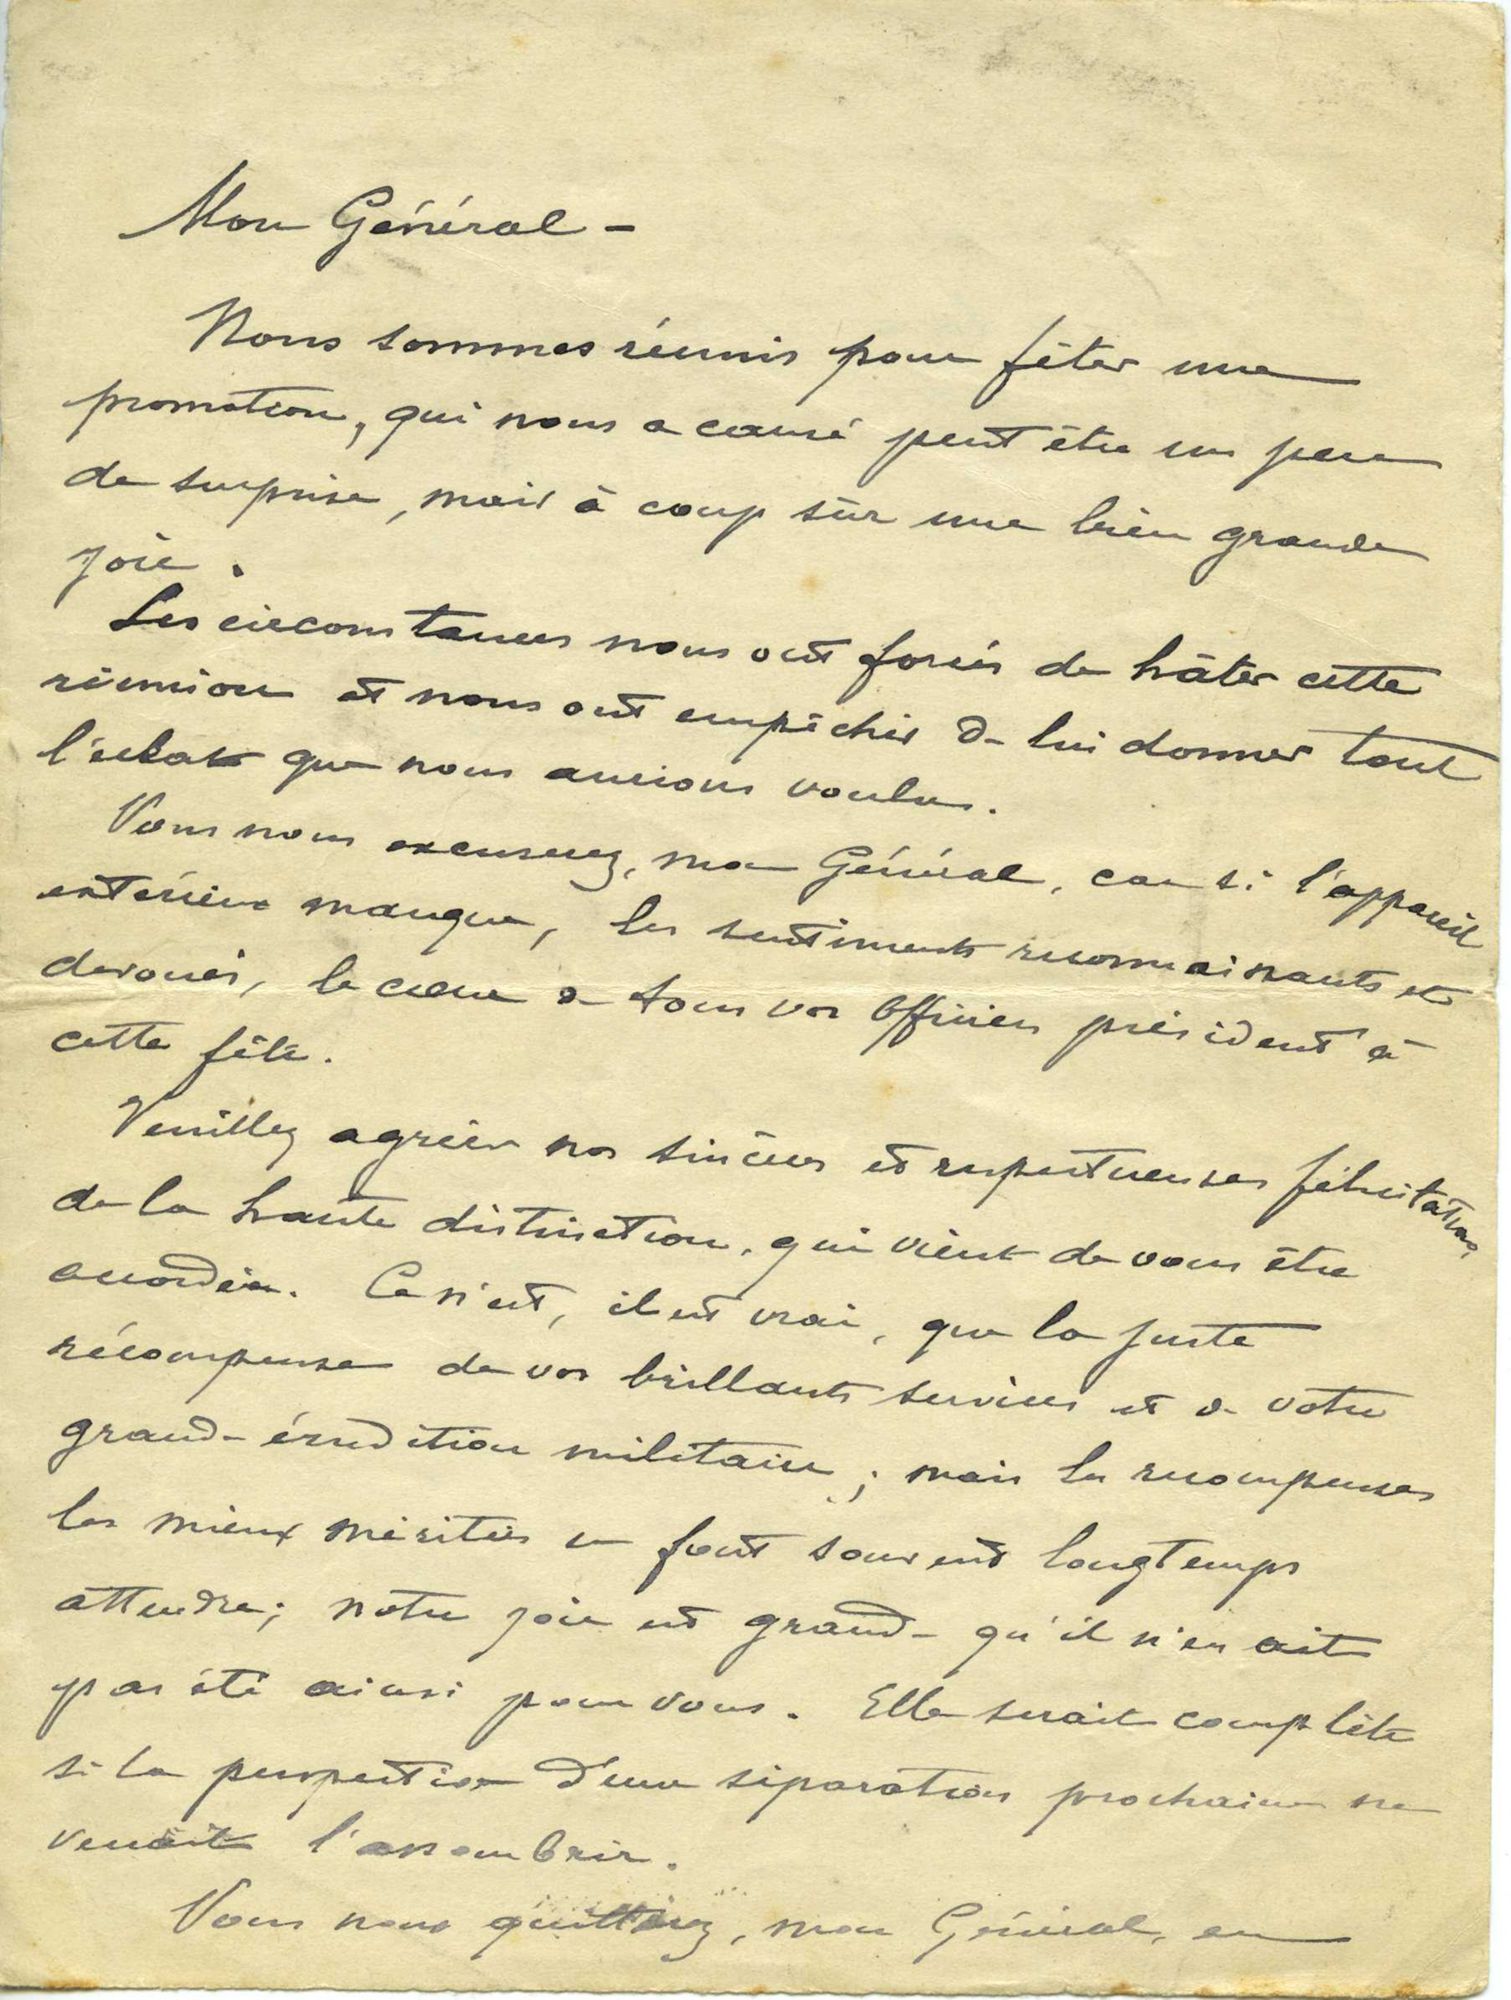 Mon Général –
Nous sommes réunis pour fêter une
promotion, qui nous a causé peut être un peu
de surprise, mais à coup sûr une bien grande
joie.
Les circonstances nous ont forcés de hâter cette
réunion et nous ont empêchés de lui donner tout
l'éclat que nous aurions voulu.
Vous nous excuserez, mon Général, car si l'appareil
extérieur manque, les sentiments reconnaissants et
dévoués, le cœur de tous vos officiers président à
cette fête.
Veuillez agréer nos sincères et respectueuses félicitations,
de la haute distinction, qui vient de vous être
accordée. Ce n'est, il est vrai, que la juste
récompense de vos brillants services et de votre
grande érudition militaire ; mais les récompenses
les mieux méritées se font souvent longtemps
attendre ; notre joie est grande qu'il n'en ait
pas été ainsi pour vous. Elle serait complète
si la perspective d'une séparation prochaine ne
venait l'assombrir.
Vous nous quitterez, mon Général, en